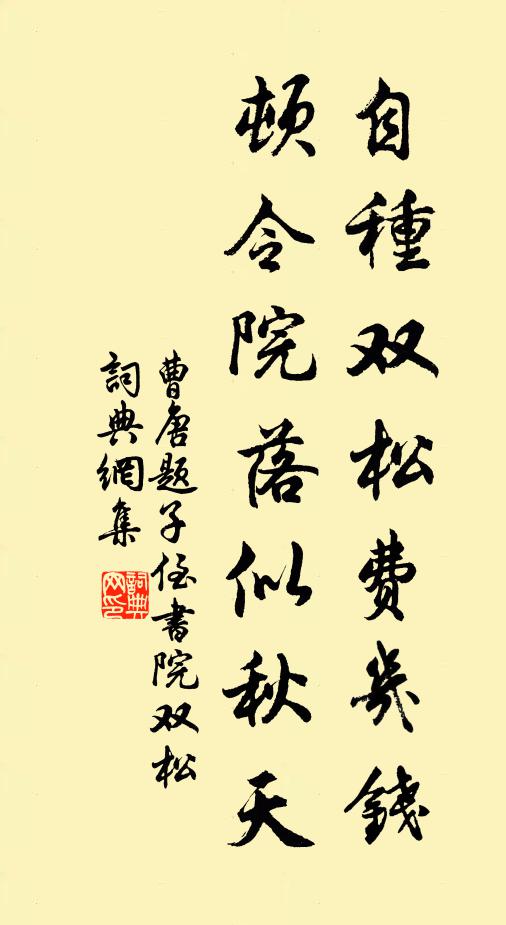 自種双松費幾錢
頓令院落似秋天
曹唐題子侄書院双松
詞典網集
詞典网印